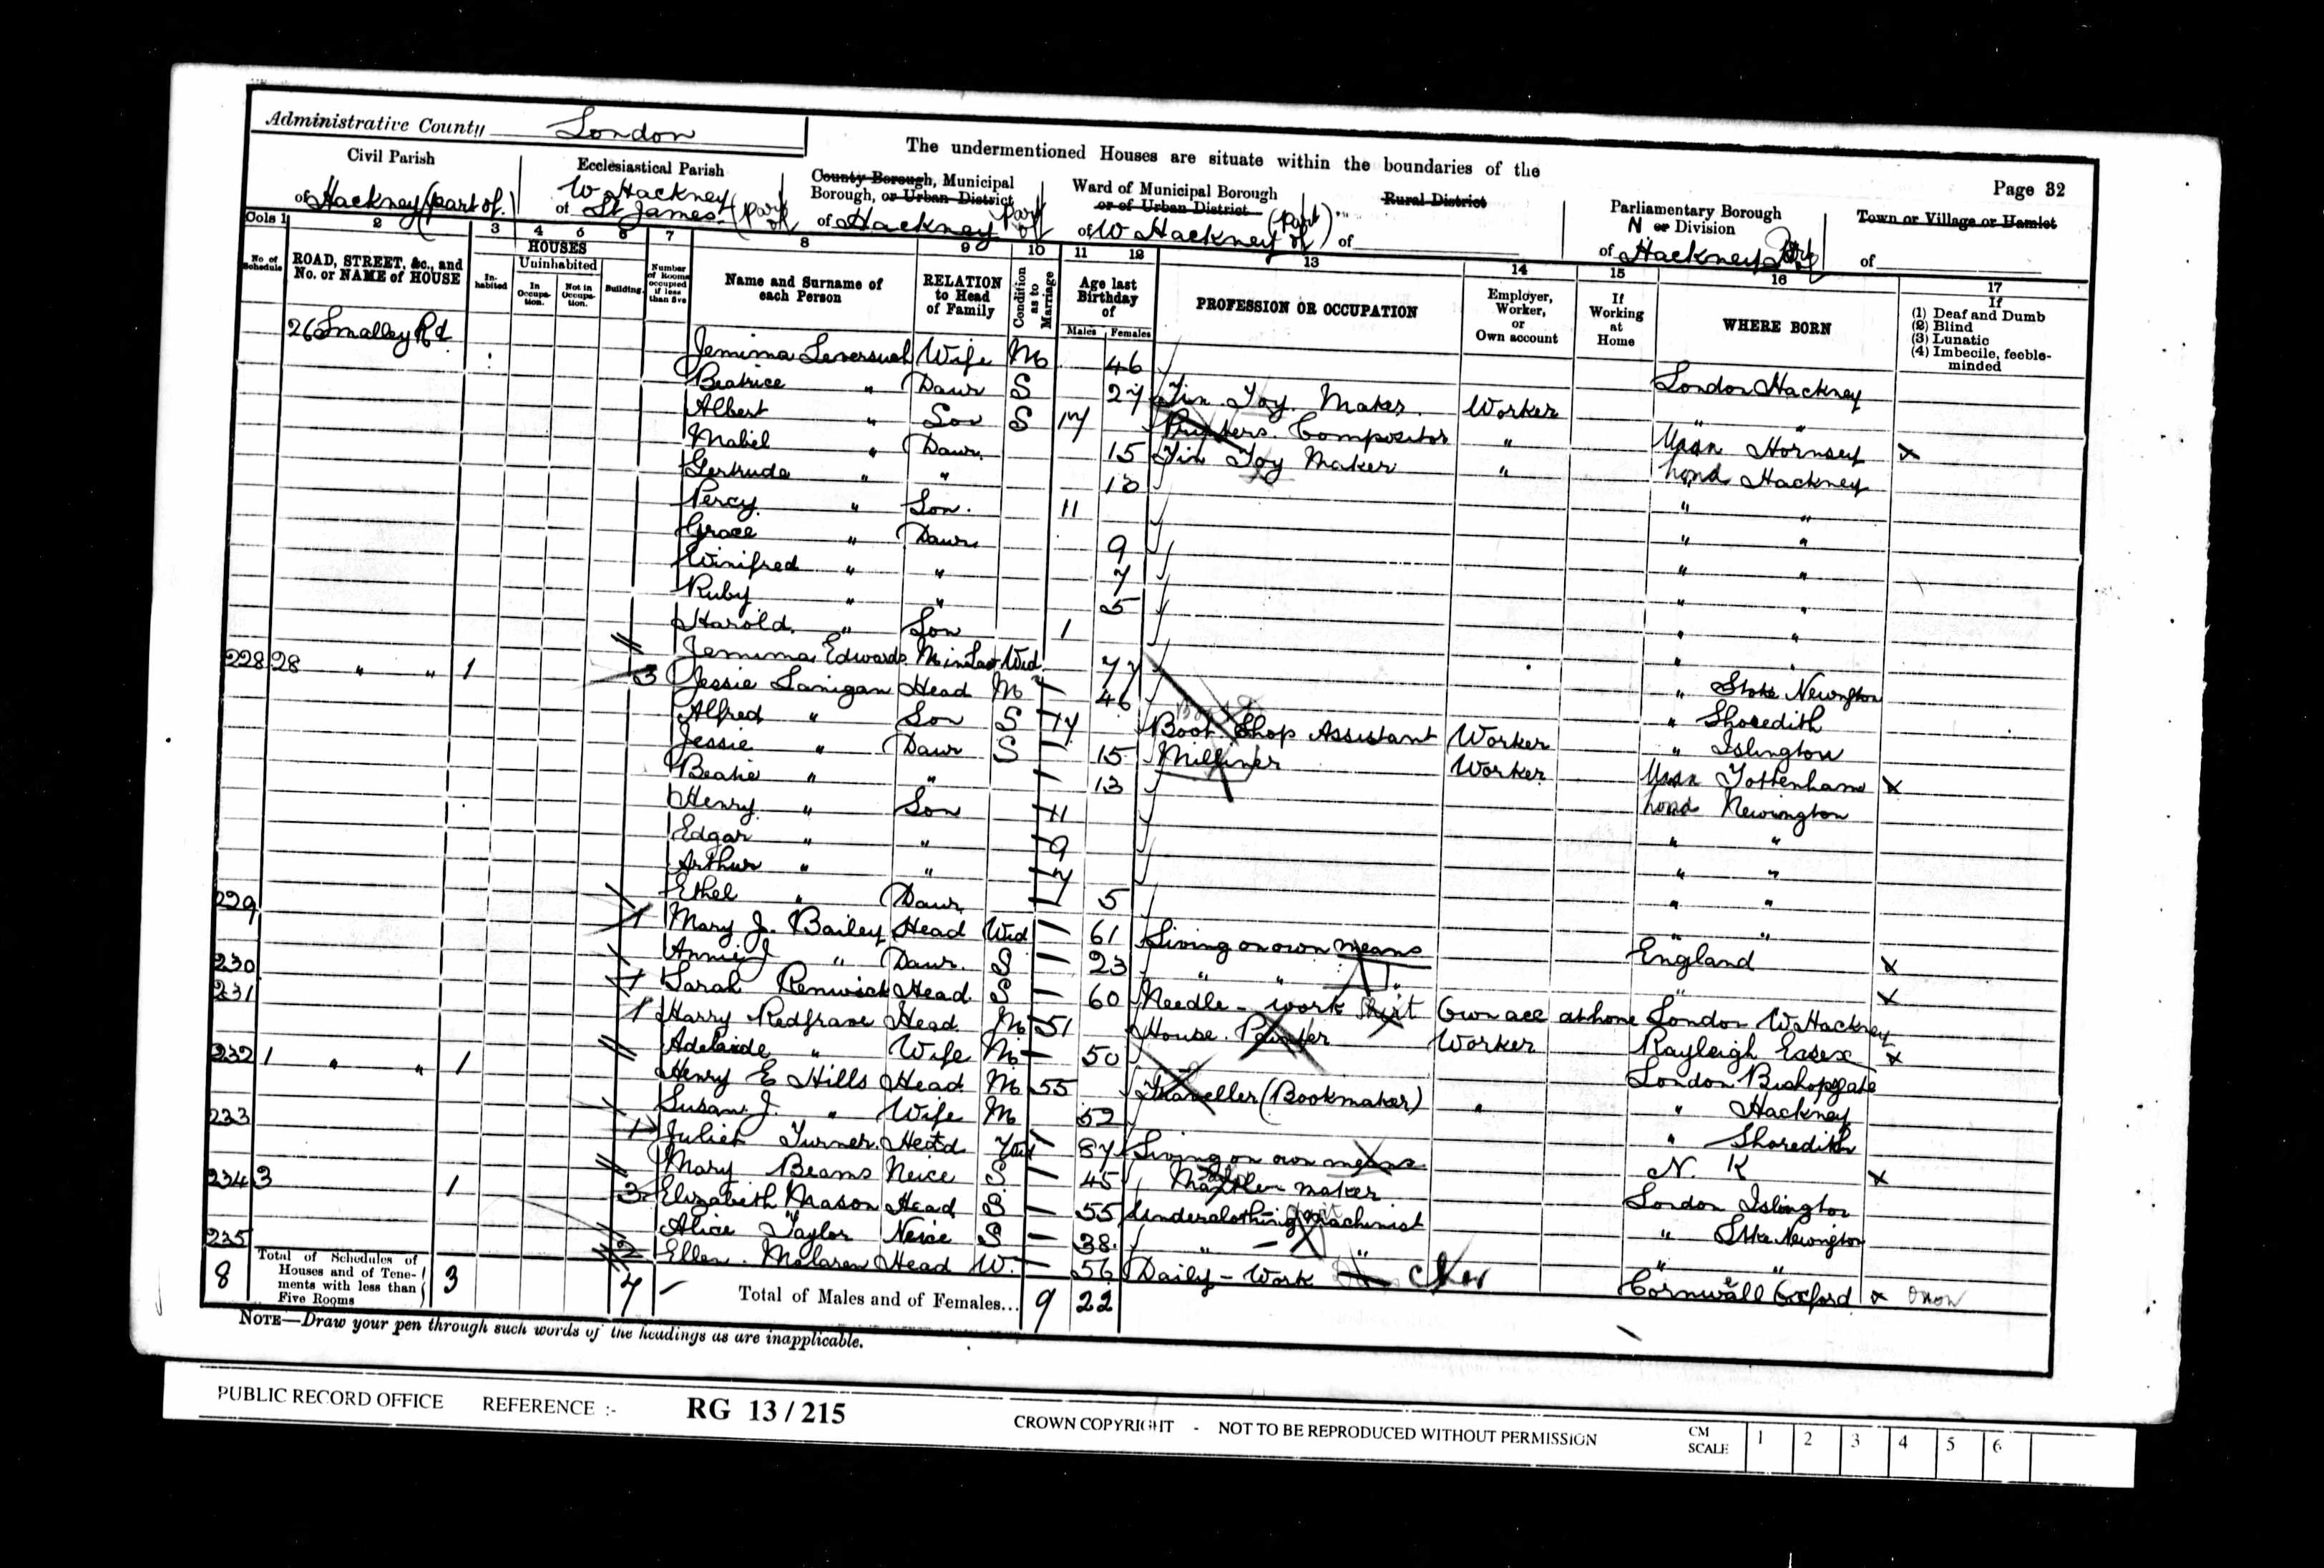 Administrative County London
The undermentioned Houses are situate within the boundaries of the
Page 32
Civil Parish of Hackney (part of)
Ecclesiastical Parish of W Hackney St James (part of
County Borough, Municipal Borough, or Urban District of Hackney part of
Ward of Municipal Borough or of Urban District of W Hackney (part of)
Rural District of
Parliamentary Borough N or Division of Hackney Part of
Town or Village or Hamlet of
Cols 1 2 3 4 5 6 7 8 9 10 11 12 13 14 15 16 17
No. of Schedule
ROAD, STREET, &c., and No. or NAME of HOUSE
HOUSES
Inhabited
Uninhabited
In Occupation.
Not in Occupation.
Building.
Number of Rooms occupied if less than five
Name and Surname of each Person
RELATION to Head of Family
Condition as to Marriage
Age last Birthday of
Males Females
PROFESSION OR OCCUPATION
Employer, Worker, or Own account
If Working at Home
WHERE BORN
If
(1) Deaf and Dumb
(2) Blind
(3) Lunatic
(4) Imbecile, feeble-minded
26 Smalley Rd Jemima Leversuch Wife M 46 London Hackney
Beatrice " Daur S 27 Tin Toy Maker Worker " "
Albert " Son S 17 Printers Compositor " Hornsey x
Mabel " Daur. 15 Tin Toy Maker " Lond Hackney
Gertrude " " " "
Percy. " Son. 11 " "
Grace " Daur. 9 " "
Winifred " " 7 " "
Ruby " " 5 " "
Harold. " Son 1 " "
Jemima Edwards M in Law Wid. 77 " Stoke Newington
228 28 " " 1 3 Jessie Lanigan Head M 46 " Shoredith
Alfred " Son S 17 Boot Shop Assistant Worker " Islington
Jessie " Daur S 15 Milliner Worker Tottenham x
Beatie " " 13 Lond Newington
Henry " Son 11 " "
Edgar " " 9 " "
Arthur " " 7 " "
Ethel " Daur 5 " "
229 1 Mary J. Bailey Head Wid 61 Living on own means England x
Annie J " Daur. S 23 " " " " x
230 1 Sarah Renwick Head S 60 Needle-work Own acc at home London W Hackney
231 1 Harry Redfrave Head M 51 House. Painter Worker Rayleigh Essex x
Adelaide " Wife M 50 London Bishopsgate
232 1 " " 1 Henry E Hills Head M 55 Traveller (Bookmaker) " " Hackney
Susan J. " Wife M 52 " Shoredith
233 1 Juliet Turner. Head Wid 87 Living on own means N. K x
Mary Beams Neice S 45 maker London Islington
234 3 1 3 Elizabeth Mason Head S 55 Underclothing machinist " Stke Newington
Alice Taylor Neice S 38. " " " "
235 2 Ellen. Malaren Head W. 56 Daily - Work Cornwall x
8 Total of Schedules of Houses and of Tenements with less than Five Rooms 3 7 Total of Males and of Females... 9 22
NOTE—Draw your pen through such words of the headings as are inapplicable.
PUBLIC RECORD OFFICE REFERENCE :- RG 13/215 CROWN COPYRIGHT - NOT TO BE REPRODUCED WITHOUT PERMISSION CM SCALE 1 2 3 4 5 6